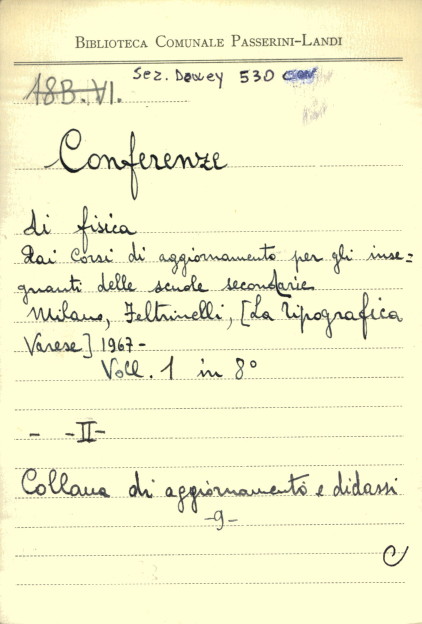 BIBLIOTECA COMUNALE PASSERINI-LANDI
Sez. Dewey 530 CON
18B.VI.
Conferenze
di fisica
Dai Corsi di aggiornamento per gli inse=
gnanti delle scuole secondarie
Milano, Feltrinelli, [La Tipografica
Varese] 1967-
Voll. 1 in 8°
- -II-
Collana di aggiornamento e didassi
-9-
C